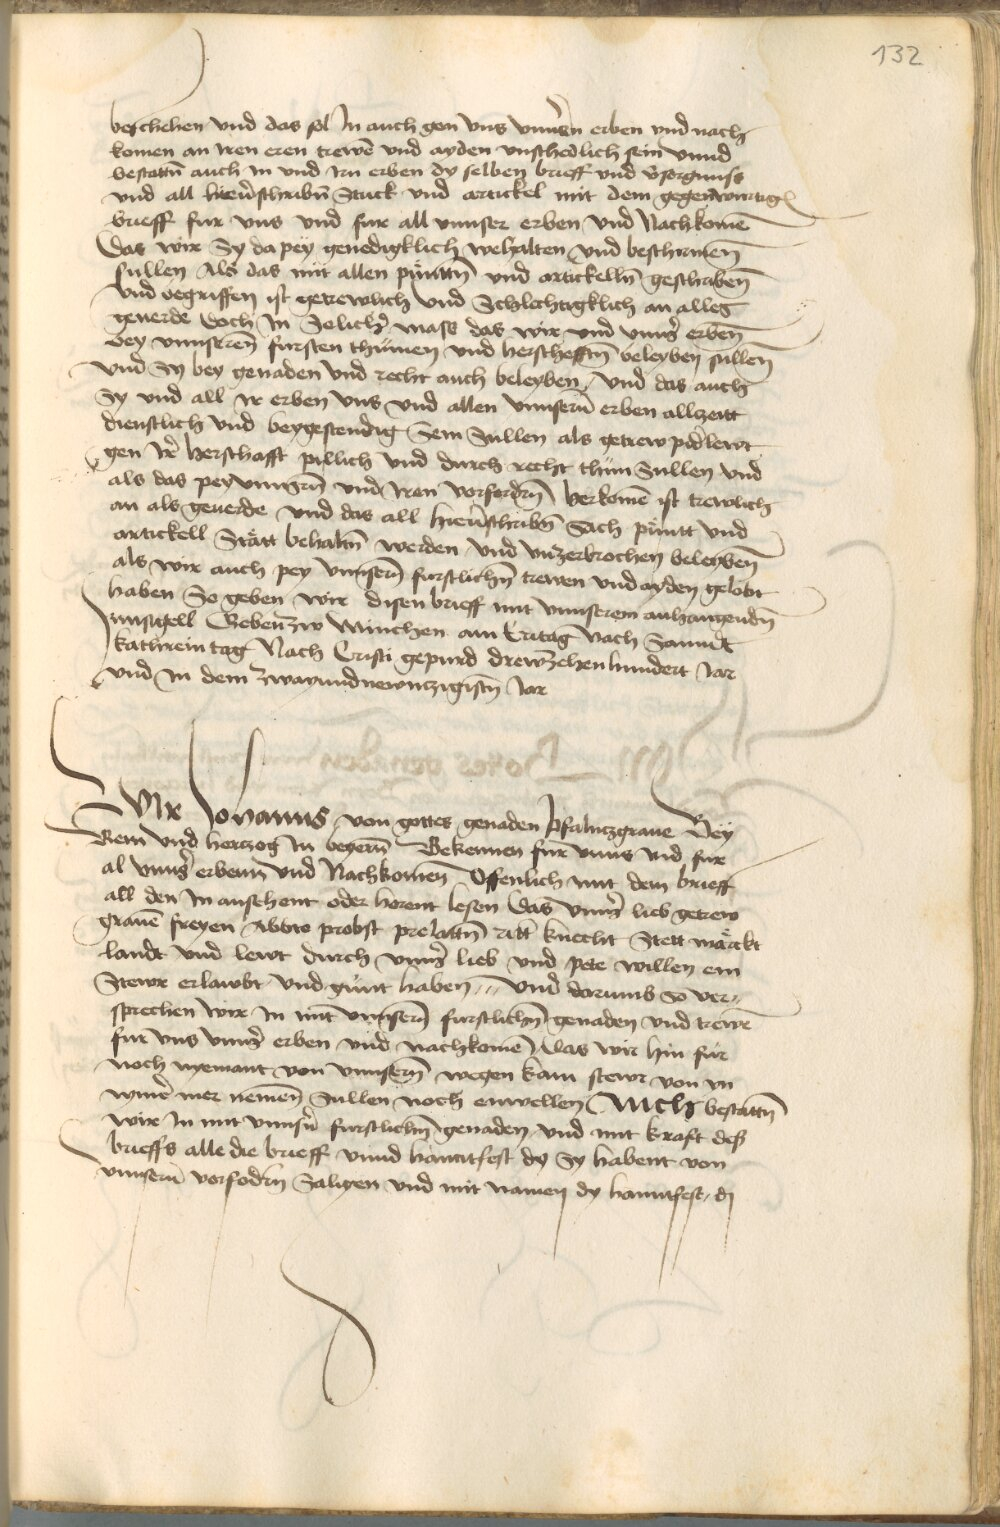 132
beschehen vnd das sol In auch gen vns vnnsern erben vnd nach
komen an Iren eren trewē vnd ayden vnschedlich sein vnnd
bestattñ auch in vnd Irn erben dy selben brieff vnd
vnd all hieuorschribñ Stuck vnd artickel mit dem gegenwurtigñ
brieff fur vns vnd fur all vnnser erben vnd Nachkomē
Das wir Sy da pey genedigklich wehalten vnd beschirmen
sullen Als das mit allen püntten vnd artickelln geschriben
vnd begriffen ist getrewlich vnd Schlechtigklich an alles
geuerde Doch In Solicher mass das wir vnd vnnser erben
bey vnnseren fursten thumen vnd herscheften beleyben sullen
vnd Sy bey genaden vnd recht auch beleyben / vnd das auch
Sy vnd all Ir erben vns vnd allen vnnserñ erben allczeitt
dienstlich vnd beygestendig Sein Sullen als getrew lewt
gen Ir herschafft pillich vnd durch recht thun Sullen vnd
als das pey vnnserñ vnd Iren vorfordrñ herkomē ist trewlich
an als geuerde vnd das all hieuorschribñ Sach püntt vnd
artickell Stätt behaltñ werden vnd vnzerbrochen beleyben
als wir auch pey vnnserñ furstlichñ trewen vnd ayden gelobt
haben So geben wir disen brieff mit vnnserem anhangendñ
Innsigell Geben zw München am Eritag Nach Sannd
kathrein tag Nach Cristi gepurd drewzehenhundert Jar
vnd In dem zwayundnewnczigistñ Jar
WIr Johanns von gottes genaden Pfalntzgraue Bey
Rein vnd herczog In beyerñ Bekennen fur vnns vnd fur
al vnnser erbenn vnd Nachkomen Offenlich mit dem brieff
all den In ansehent oder horent lesen Das vnnser lieb getrew
grauē freyen Abbte probst prelattñ ritter knecht Stett märckt
landt vnd lewt durch vnnser lieb vnd pete willen ein
Stewr erlawbt vnd günt haben vnd darumb So ver
sprechen wir In mit vnnserñ furstlichñ genaden vnd trewē
fur vns vnnser erben vnd nachkomē Das wir hin für
noch nyemant von vnnserñ wegen kain stewr von in
nymer mer nemen Sullen noch enwellen Auch bestattñ
wir In mit vnnserñ furstlichñ genaden vnd mit kraft des
brieffs alle die brieff vnnd hanntfest dy Sy habent von
vnnserñ vorfodrñ Saligen vnd mit namen dy hanntfest